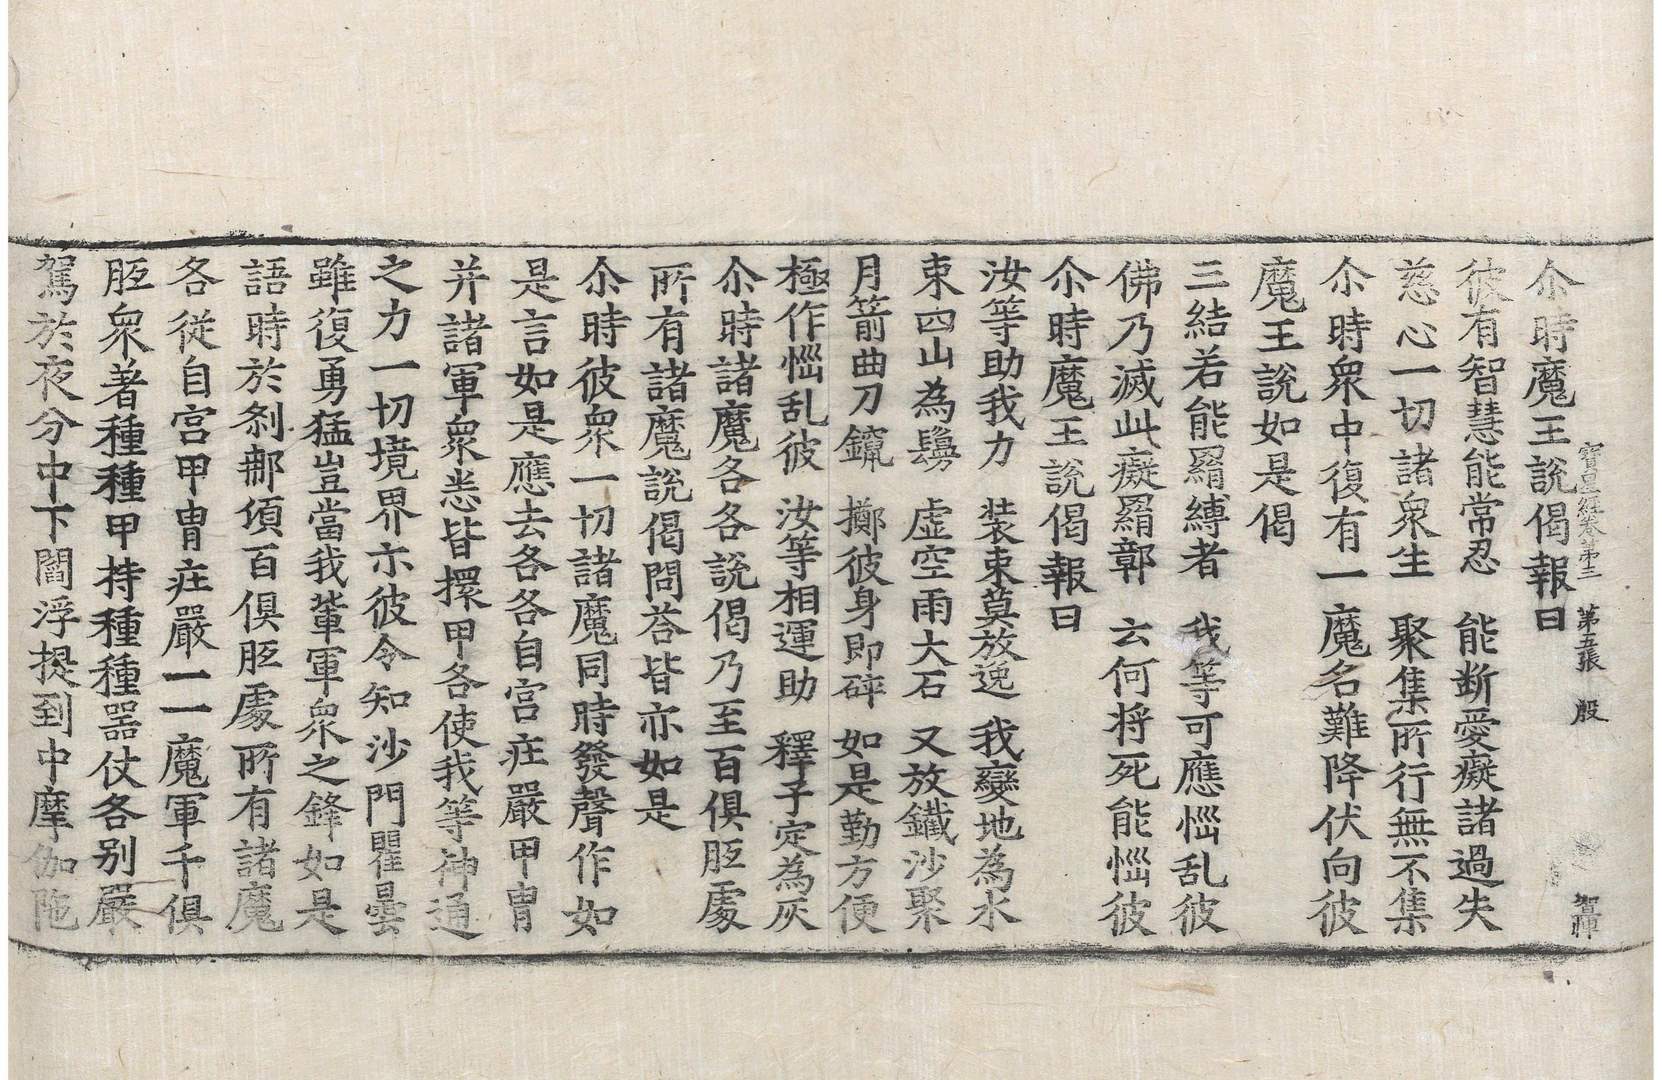 寶星經卷第三 第五張 殷 智惲
尒時魔王說偈報曰
彼有智慧能常忍 能断愛癡諸過失
慈心一切諸衆生 聚集所行無不集
尒時衆中復有一魔名難降伏向彼
魔王說如是偈
三結若能羂縛者 我等可應惱乱彼
佛乃滅此癡羂鄣 云何将死能惱彼
尒時魔王說偈報曰
汝等助我力 装束莫放逸 我變地為水
束四山為鬘 虚空雨大石 又放鐵沙聚
月箭曲刀鑹 擲彼身即碎 如是勤方便
極作惱乱彼 汝等相運助 釋子定為灰
尒時諸魔各各說偈乃至百俱胝處
所有諸魔說偈問荅皆亦如是
尒時彼衆一切諸魔同時發聲作如
是言如是應去各各自宫庄嚴甲冑
并諸軍衆悉皆擐甲各使我等神通
之力一切境界示彼令知沙門瞿曇
雖復勇猛豈當我輩軍衆之鋒如是
語時於刹那須百俱胝處所有諸魔
各従自宫甲冑庄嚴一一魔軍千俱
胝衆著種種甲持種種噐仗各別嚴
駕於夜分中下閻浮提到中摩伽陁